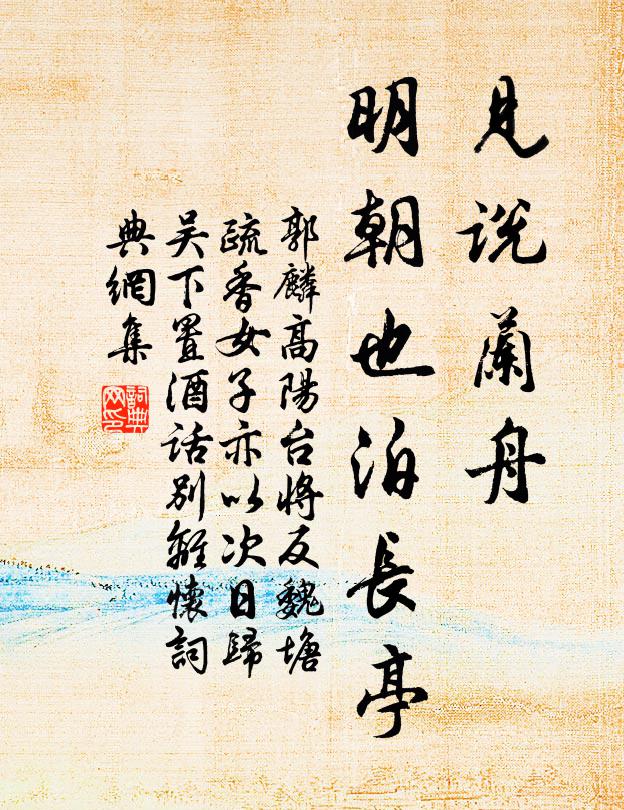 見說蘭舟
明朝也泊長亭
郭麟高陽台將反魏塘
疏香女子亦以次日歸
吴下置酒話别離懷詞
典網集
詞典網印